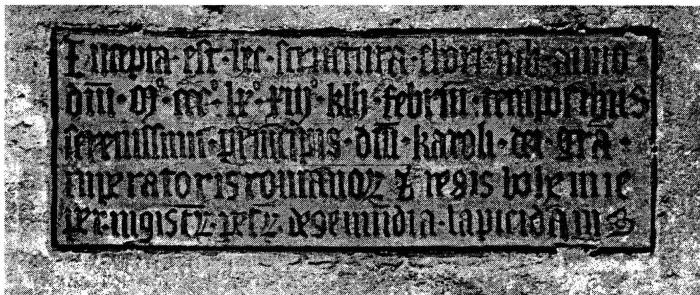 Incepta·est·hec·structura·chori·sub·anno·
dn̄i·m°·ccc°·lx°·xiij°·klij·februarii·temporibus
serenissimi·principis·dn̄i·karoli·dei·gr̄a·
imperatoris romanoꝝ ⁊ regis bohemie
per·mgistꝝ·petꝝ·de gemūdia·lapicidam